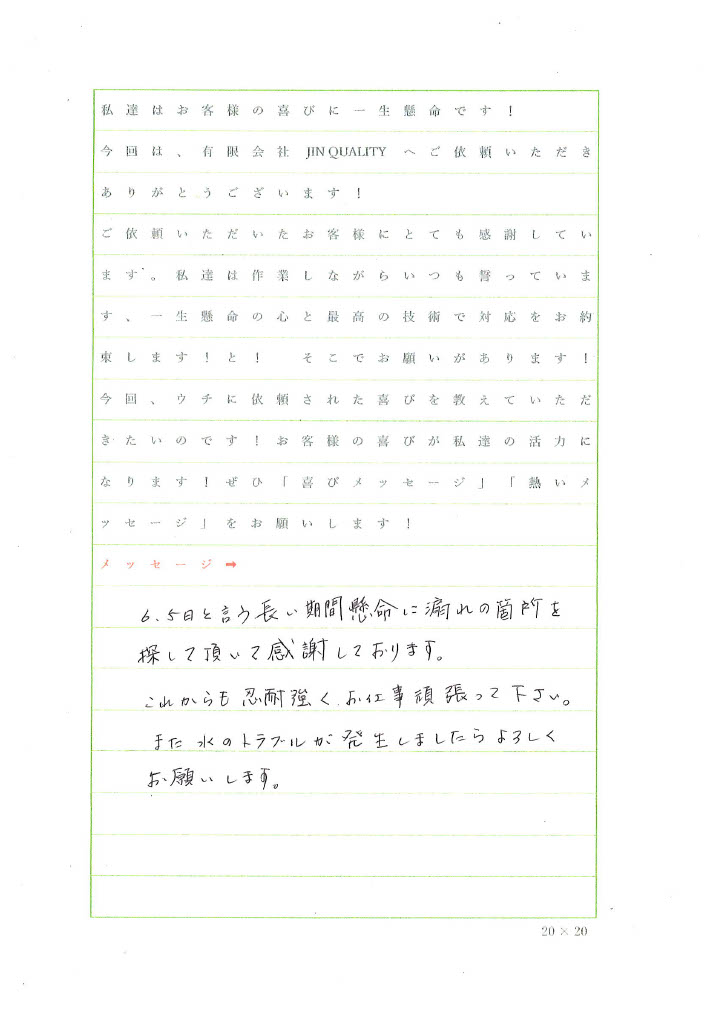 私達はお客様の喜びに一生懸命です！
今回は、有限会社 JIN QUALITY へご依頼いただき
ありがとうございます！
ご依頼いただいたお客様にとても感謝してい
ます。私達は作業しながらいつも誓っていま
す、一生懸命の心と最高の技術で対応をお約
束します！と！　そこでお願いがあります！
今回、ウチに依頼された喜びを教えていただ
きたいのです！お客様の喜びが私達の活力に
なります！ぜひ「喜びメッセージ」「熱いメ
ッセージ」をお願いします！
メッセージ➡
6.5日と言う長い期間懸命に漏れの箇所を
探して頂いて感謝しております。
これからも忍耐強くお仕事頑張って下さい。
また水のトラブルが発生しましたらよろしく
お願いします。
20×20